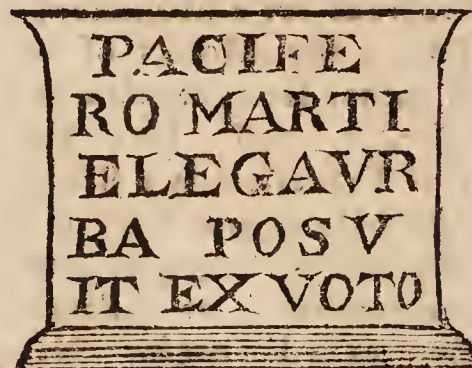 PACIFE
RO MARTI
ELEGAVR
BA POSV
IT EX VOTO